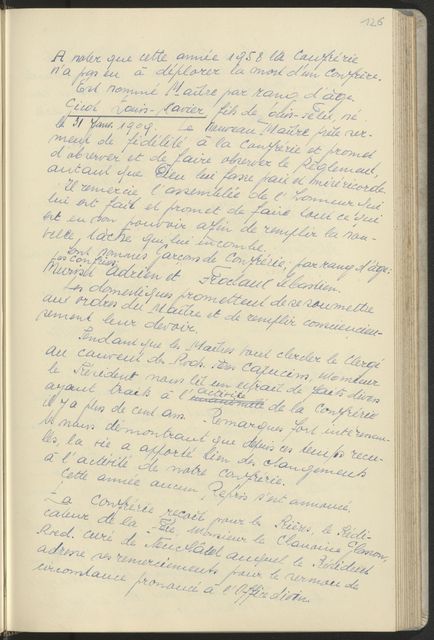 126
A noter que cette année 1958 la Confrérie
n'a pas eu à déplorer la mort d'un Confrère.
Est nommé Maître par rang d'âge.
Girod Louis-Xavier, fils de né
le 31 Janv. 1909. Le nouveau Maître prête ser-
ment de fidélité à la Confrérie et promet
d'observer et de faire observer le Règlement,
autant que Dieu lui fasse paix et miséricorde.
Il remercie l'assemblée de l'honneur qui
lui est fait et promet de faire tout ce qui
est en son pouvoir afin de remplir la nou-
velle tâche qui lui incombe.
Sont nommés garçons de Confrérie: par rang d'âge:
les Confrères
Adrien et Sébastien.
Les domestiques promettent de se soumettre
aux ordres du Maître et de remplir consciencieu-
sement leur devoir.
Pendant que les Maîtres vont chercher le Clergé
au couvent des Rvds. Pères Capucins, Monsieur
le Président nous lit un extrait de faits divers
ayant trait à l'activité de la Confrérie
il y a plus de cent ans. Remarques fort intéressan-
tes nous démontrant que depuis ces temps recu-
lés, la vie a apporté bien des changements
à l'activité de notre Confrérie.
Cette année aucun Repris s'est annoncé.
La Confrérie reçoit pour la Prières, le Prédi-
cateur de la Fête, Monsieur le Chanoine Glasson,
Rvd. curé de Neuchâtel auquel le Président
adresse ses remerciements pour le sermon de
circonstance prononcé à l'Office divin.